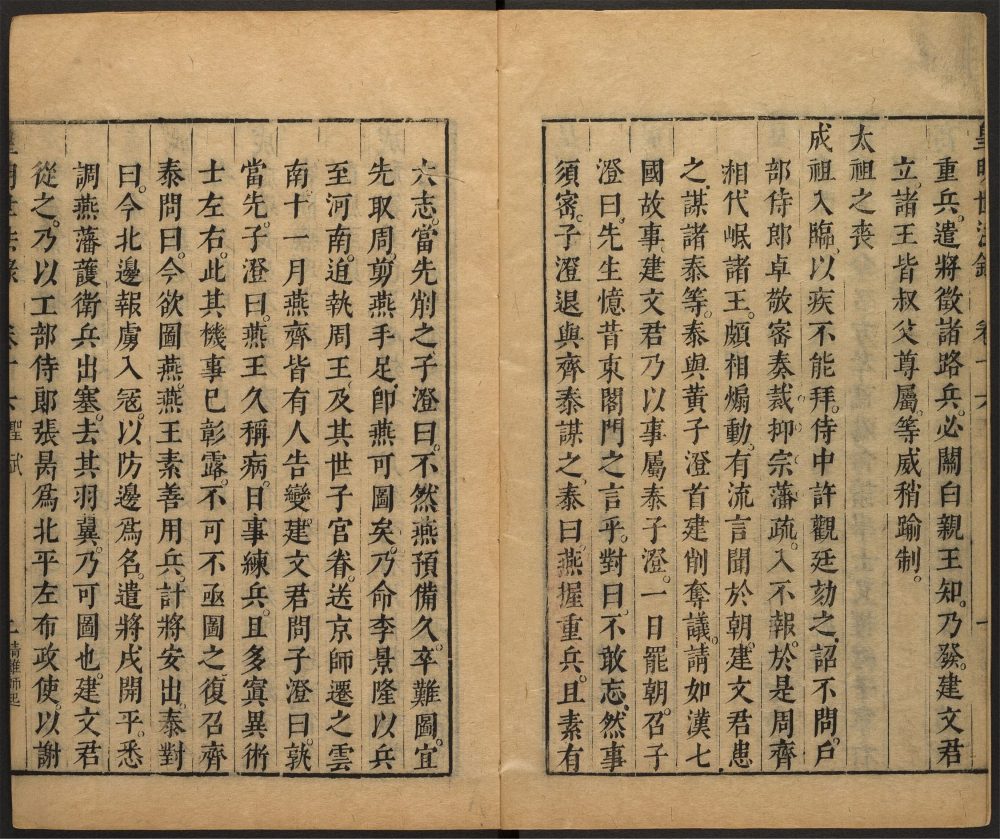 皇明世法錄 卷十六 一
重兵。遣將徵諸路兵。必關白親王知。乃發。建文君
立。諸王皆叔父尊屬。等威稍踰制。
太祖之喪
成祖入臨。以疾不能拜。侍中許觀廷劾之。詔不問。戶
部侍郎卓敬密奏裁抑宗藩疏。入不報。於是周齊
相代岷諸王。頗相煽動。有流言聞於朝。建文君患
之。謀諸泰等。泰與黃子澄首建削奪議。請如漢七
國故事。建文君乃以事屬泰子澄。一日罷朝。召子
澄曰。先生憶昔東閣門之言乎。對曰。不敢忘。然事
須密。子澄退與齊泰謀之。泰曰。燕握重兵。且素有
六志。當先削之子澄曰。不然燕預備久。卒難圖。宜
先取周。剪燕手足。卽燕可圖矣。乃命李景隆以兵
至河南。迫執周王。及其世子官眷。送京師遷之雲
南。十一月燕齊皆有人告變。建文君問子澄曰。孰
當先。子澄曰。燕王久稱病。日事練兵。且多寘異術
士左右。此其機事已彰露。不可不亟圖之。復召齊
泰問曰。今欲圖燕。燕王素善用兵。計將安出。泰對
曰。今北邊報虜入冦。以防邊爲名。遣將戍開平。悉
調燕藩護衛兵出塞。去其羽翼。乃可圖也。建文君
從之。乃以工部侍郎張昺爲北平左布政使。以謝
皇明世法錄 卷十六 聖武 二 靖難師起